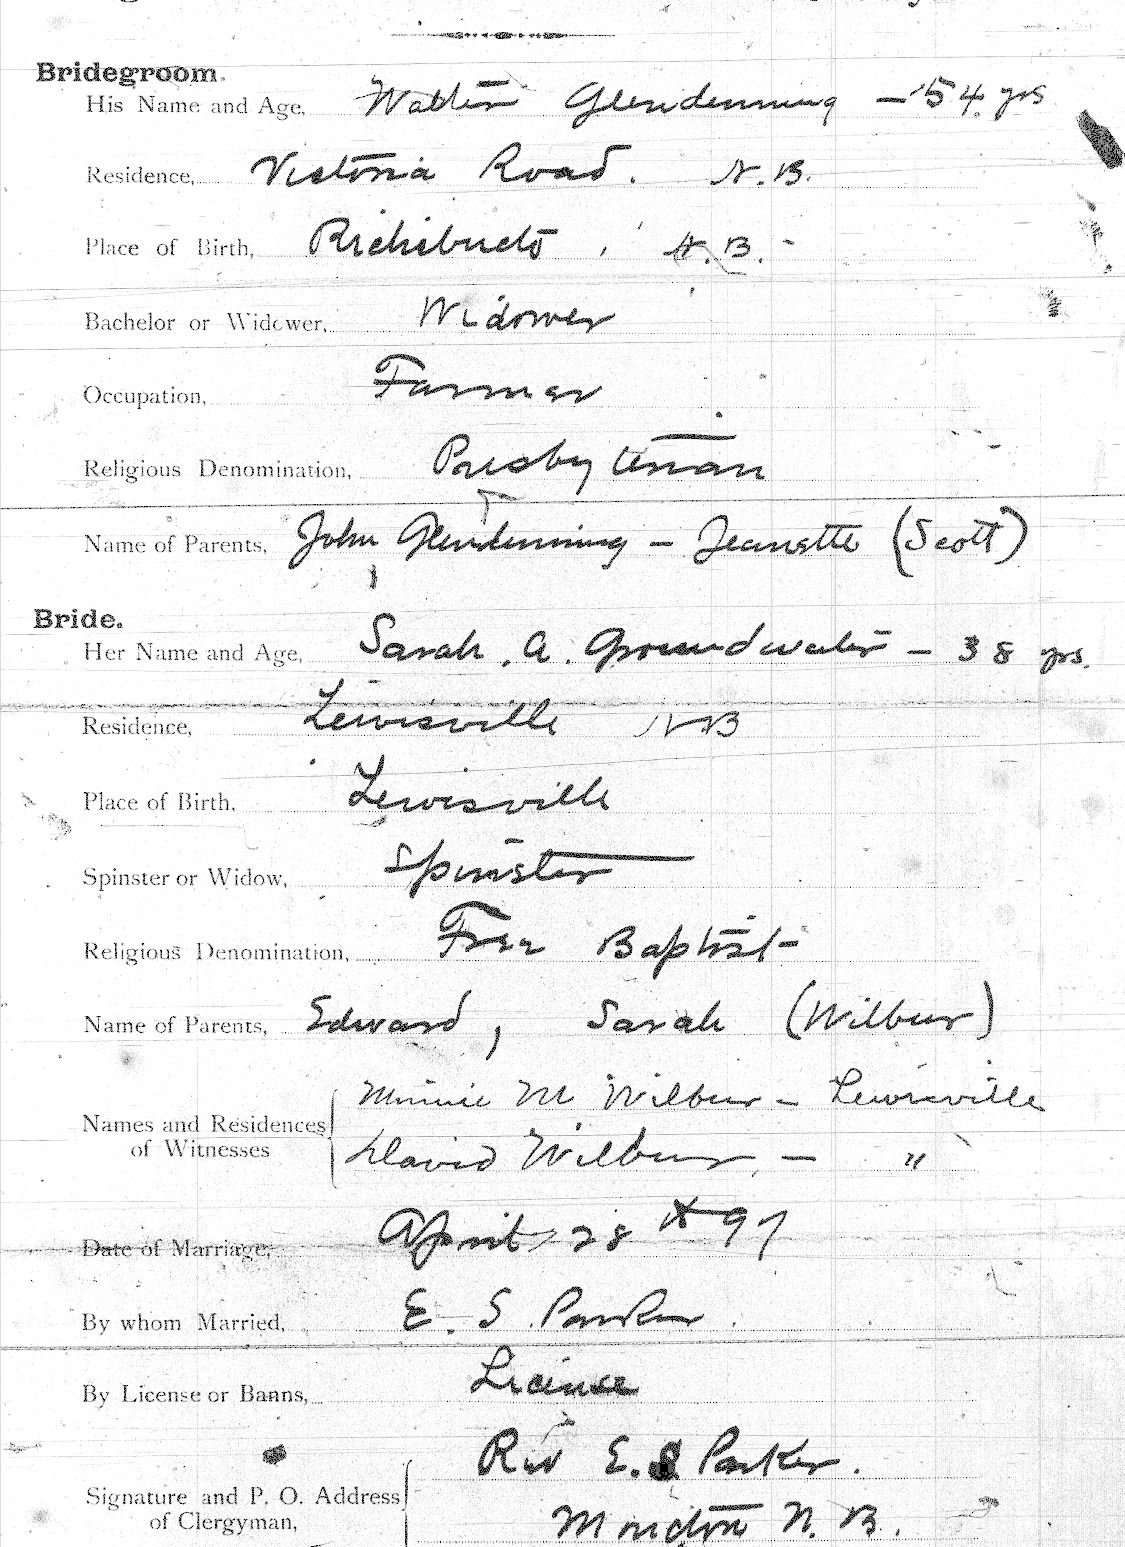 Bridegroom.
His Name and Age, Walter Glendenning - 54 yrs
Residence, Victoria Road. N.B.
Place of Birth, Richibucto, N.B.
Bachelor or Widower, Widower
Occupation, Farmer
Religious Denomination, Presbyterian
Name of Parents, John Glendenning - Jeanette (Scott)
Bride.
Her Name and Age, Sarah. A. Groundwater - 38 yrs.
Residence, Lewisville NB
Place of Birth, Lewisville
Spinster or Widow, Spinster
Religious Denomination, Free Baptist
Name of Parents, Edward, Sarah (Wilbur)
Names and Residences Minnie M Wilbur - Lewisville
of Witnesses David Wilbur, - "
Date of Marriage, April 28th 97
By whom Married, E. S. Parker.
By License or Banns, License
Rev E. S. Parker.
Signature and P. O. Address
of Clergyman, Moncton N. B.